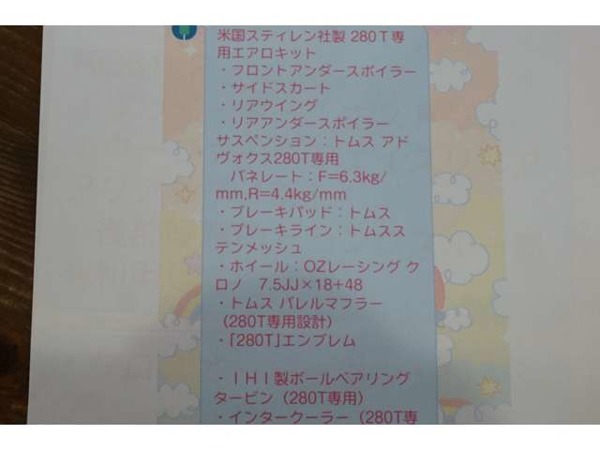 米国スティレン社製 280T専
用エアロキット
・フロントアンダースポイラー
・サイドスカート
・リアウイング
・リアアンダースポイラー
サスペンション：トムス アド
ヴォクス280T専用
バネレート：F=6.3kg/
mm,R=4.4kg/mm
・ブレーキパッド：トムス
・ブレーキライン：トムスス
テンメッシュ
・ホイール：OZレーシング ク
ロノ 7.5JJ×18+48
・トムス バレルマフラー
（280T専用設計）
・「280T」エンブレム
・ＩＨＩ製ボールベアリング
タービン（280T専用）
・インタークーラー（280T専